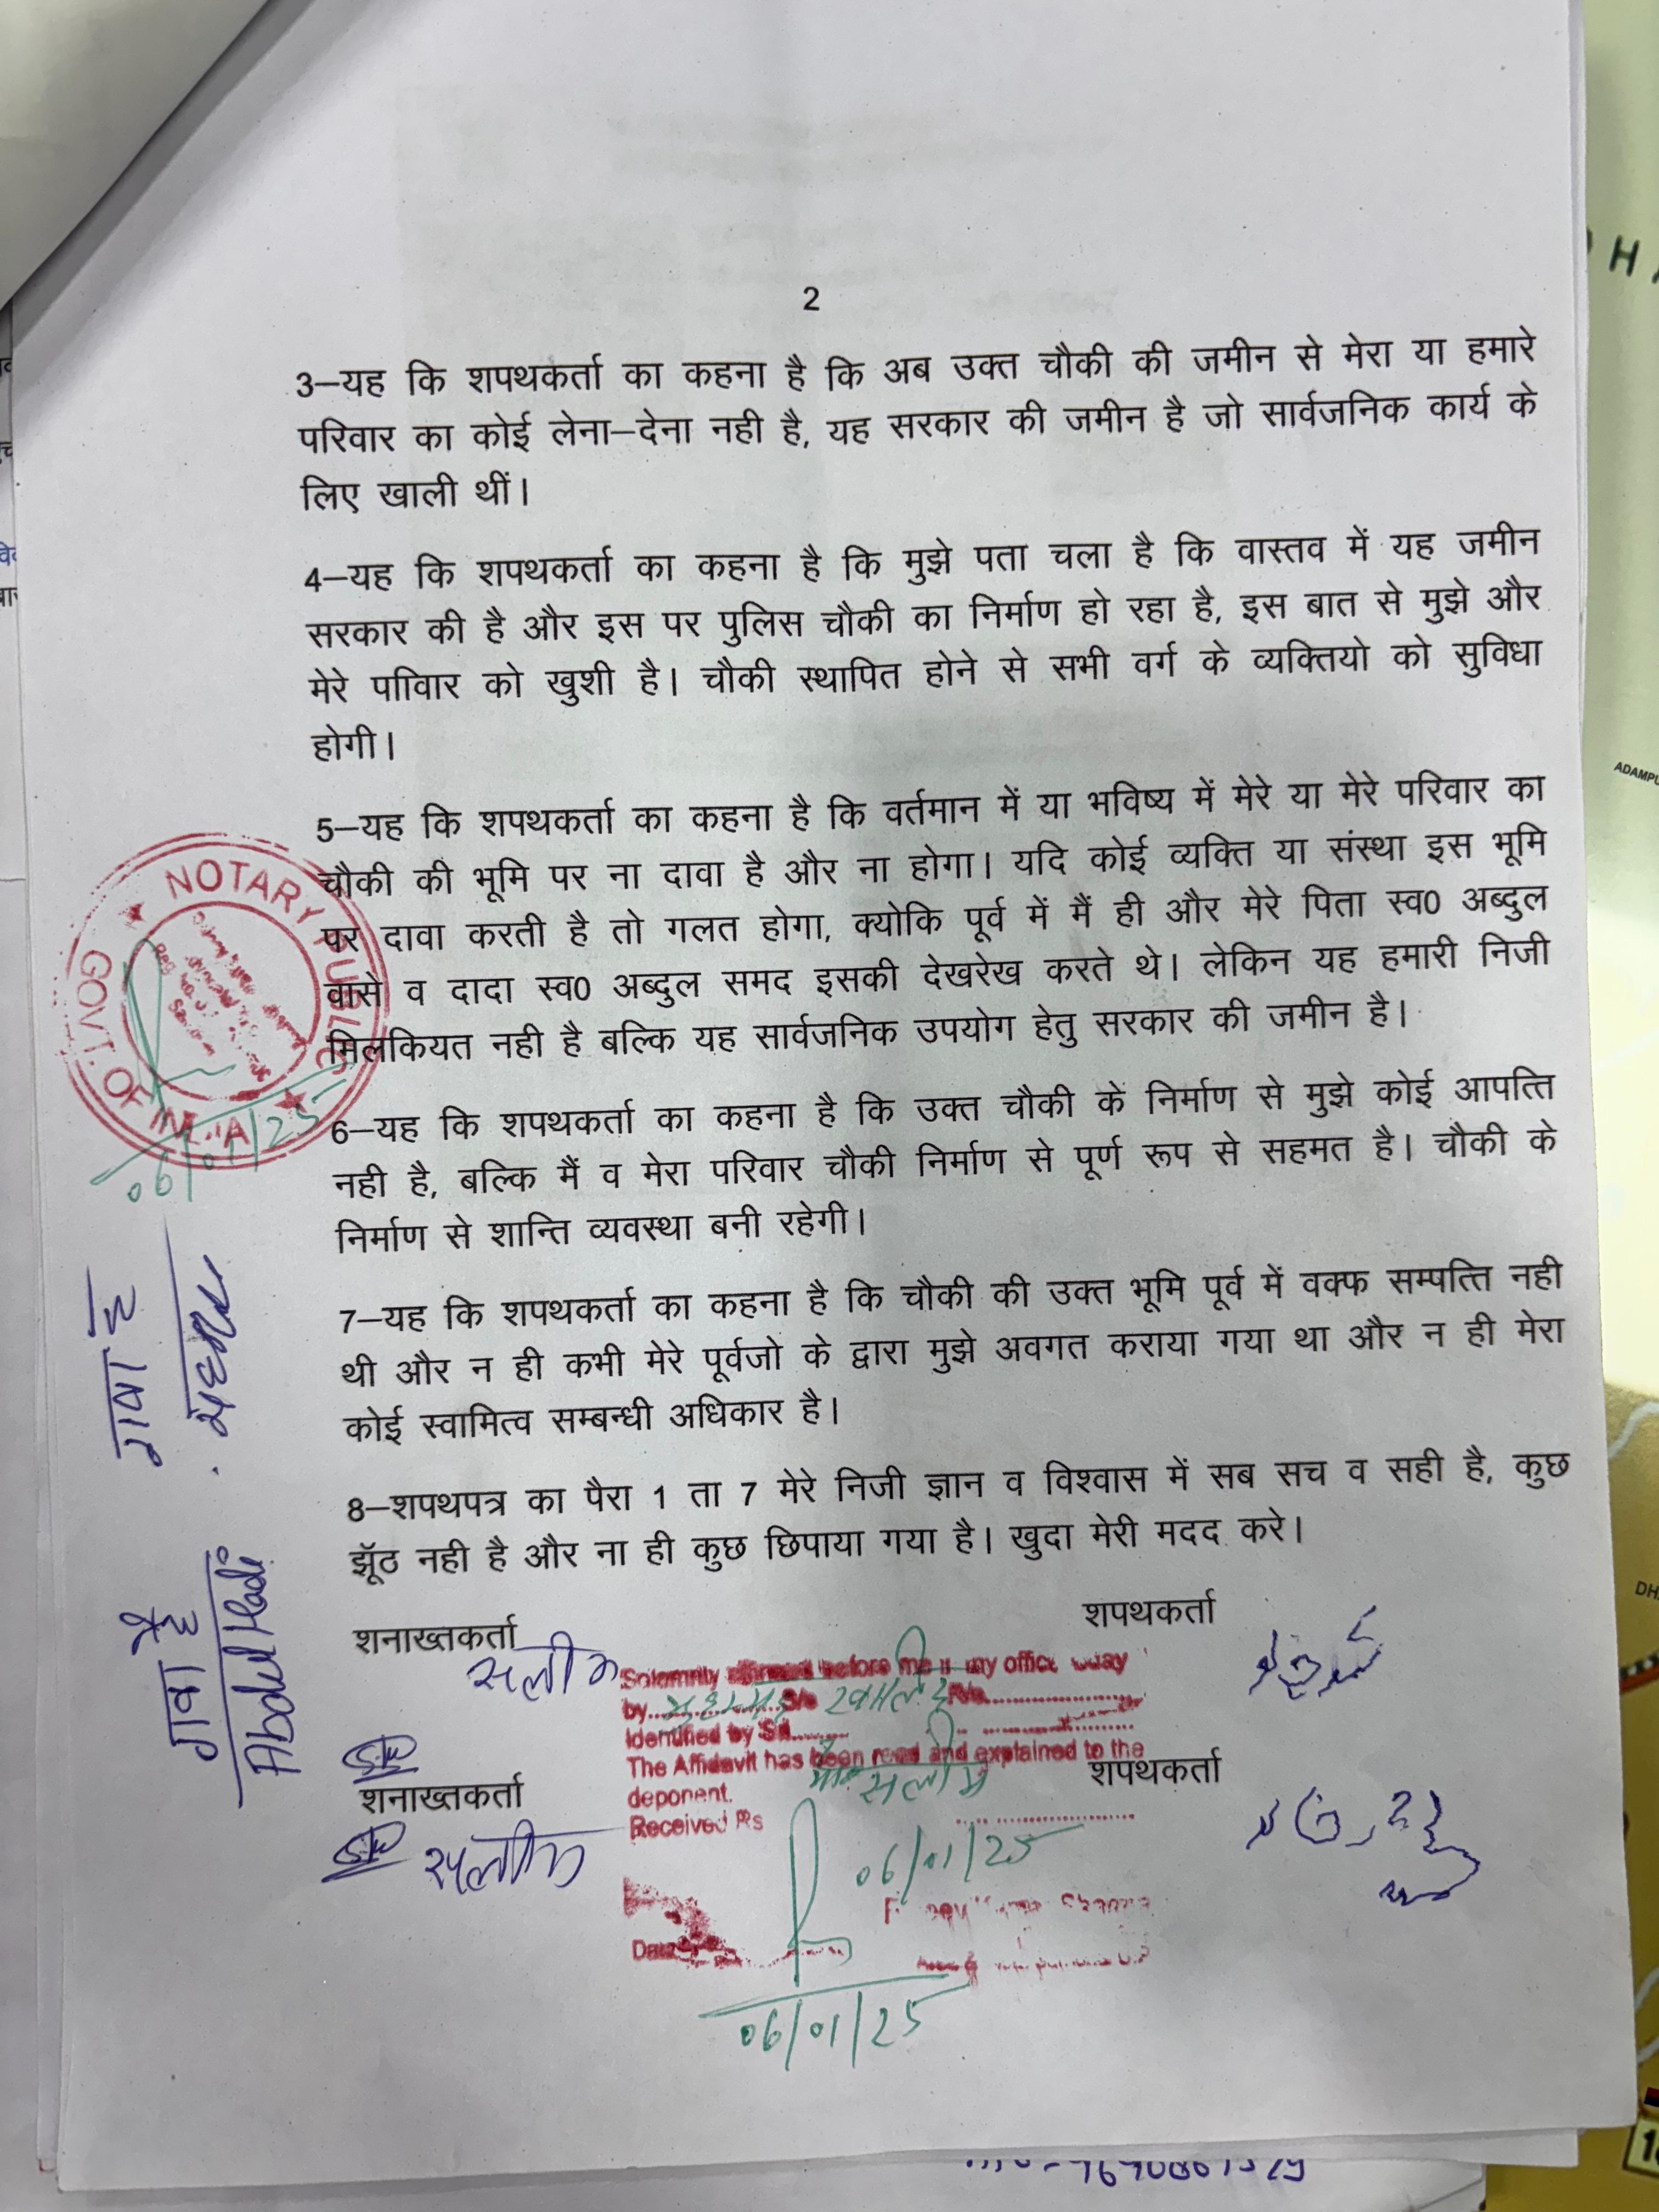 2
3–यह कि शपथकर्ता का कहना है कि अब उक्त चौकी की जमीन से मेरा या हमारे
परिवार का कोई लेना–देना नही है, यह सरकार की जमीन है जो सार्वजनिक कार्य के
लिए खाली थीं।
4–यह कि शपथकर्ता का कहना है कि मुझे पता चला है कि वास्तव में यह जमीन
सरकार की है और इस पर पुलिस चौकी का निर्माण हो रहा है, इस बात से मुझे और
मेरे पाविार को खुशी है। चौकी स्थापित होने से सभी वर्ग के व्यक्तियो को सुविधा
होगी।
5–यह कि शपथकर्ता का कहना है कि वर्तमान में या भविष्य में मेरे या मेरे परिवार का
चौकी की भूमि पर ना दावा है और ना होगा। यदि कोई व्यक्ति या संस्था इस भूमि
पर दावा करती है तो गलत होगा, क्योकि पूर्व में मैं ही और मेरे पिता स्व0 अब्दुल
वासे व दादा स्व0 अब्दुल समद इसकी देखरेख करते थे। लेकिन यह हमारी निजी
मिलकियत नही है बल्कि यह सार्वजनिक उपयोग हेतु सरकार की जमीन है।
6–यह कि शपथकर्ता का कहना है कि उक्त चौकी के निर्माण से मुझे कोई आपत्ति
नही है, बल्कि मैं व मेरा परिवार चौकी निर्माण से पूर्ण रूप से सहमत है। चौकी के
निर्माण से शान्ति व्यवस्था बनी रहेगी।
7–यह कि शपथकर्ता का कहना है कि चौकी की उक्त भूमि पूर्व में वक्फ सम्पत्ति नही
थी और न ही कभी मेरे पूर्वजो के द्वारा मुझे अवगत कराया गया था और न ही मेरा
कोई स्वामित्व सम्बन्धी अधिकार है।
8–शपथपत्र का पैरा 1 ता 7 मेरे निजी ज्ञान व विश्वास में सब सच व सही है, कुछ
झूॅठ नही है और ना ही कुछ छिपाया गया है। खुदा मेरी मदद करे।
शनाख्तकर्ता
शपथकर्ता
सलीम
शनाख्तकर्ता
शपथकर्ता
सलीम
NOTARY PUBLIC
GOVT. OF INDIA
06/01/25
गवाह
गवाह
Abdul Hadi
Solemnly affirmed before me in my office today
by
Identified by
The Affidavit has been read and explained to the
deponent.
सलीम
Received Rs
06/01/25
Date
06/01/25
ADAMPU
DH